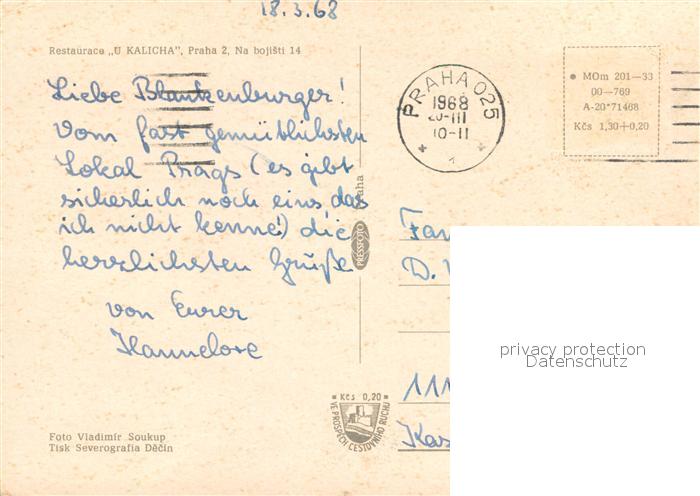 18.3.68
Restaurace „U KALICHA", Praha 2, Na bojišti 14
Liebe Blankenburger!
Vom fast gemütlichsten
Lokal Prags (es gibt
sicherlich noch eins, das
ich nicht kenne!) die
herzlichsten Grüße
von Eurer
Hannelore
Foto Vladimír Soukup
Tisk Severografia Děčín
PRESSFOTO Praha
Kčs 0,20
VE PROSPĚCH CESTOVNÍHO RUCHU
PRAHA 025
1968
20-III
10-11
MOm 201—33
00—769
A-20*71468
Kčs 1,30+0,20
Fam
D.
111
Kas
privacy protection
Datenschutz